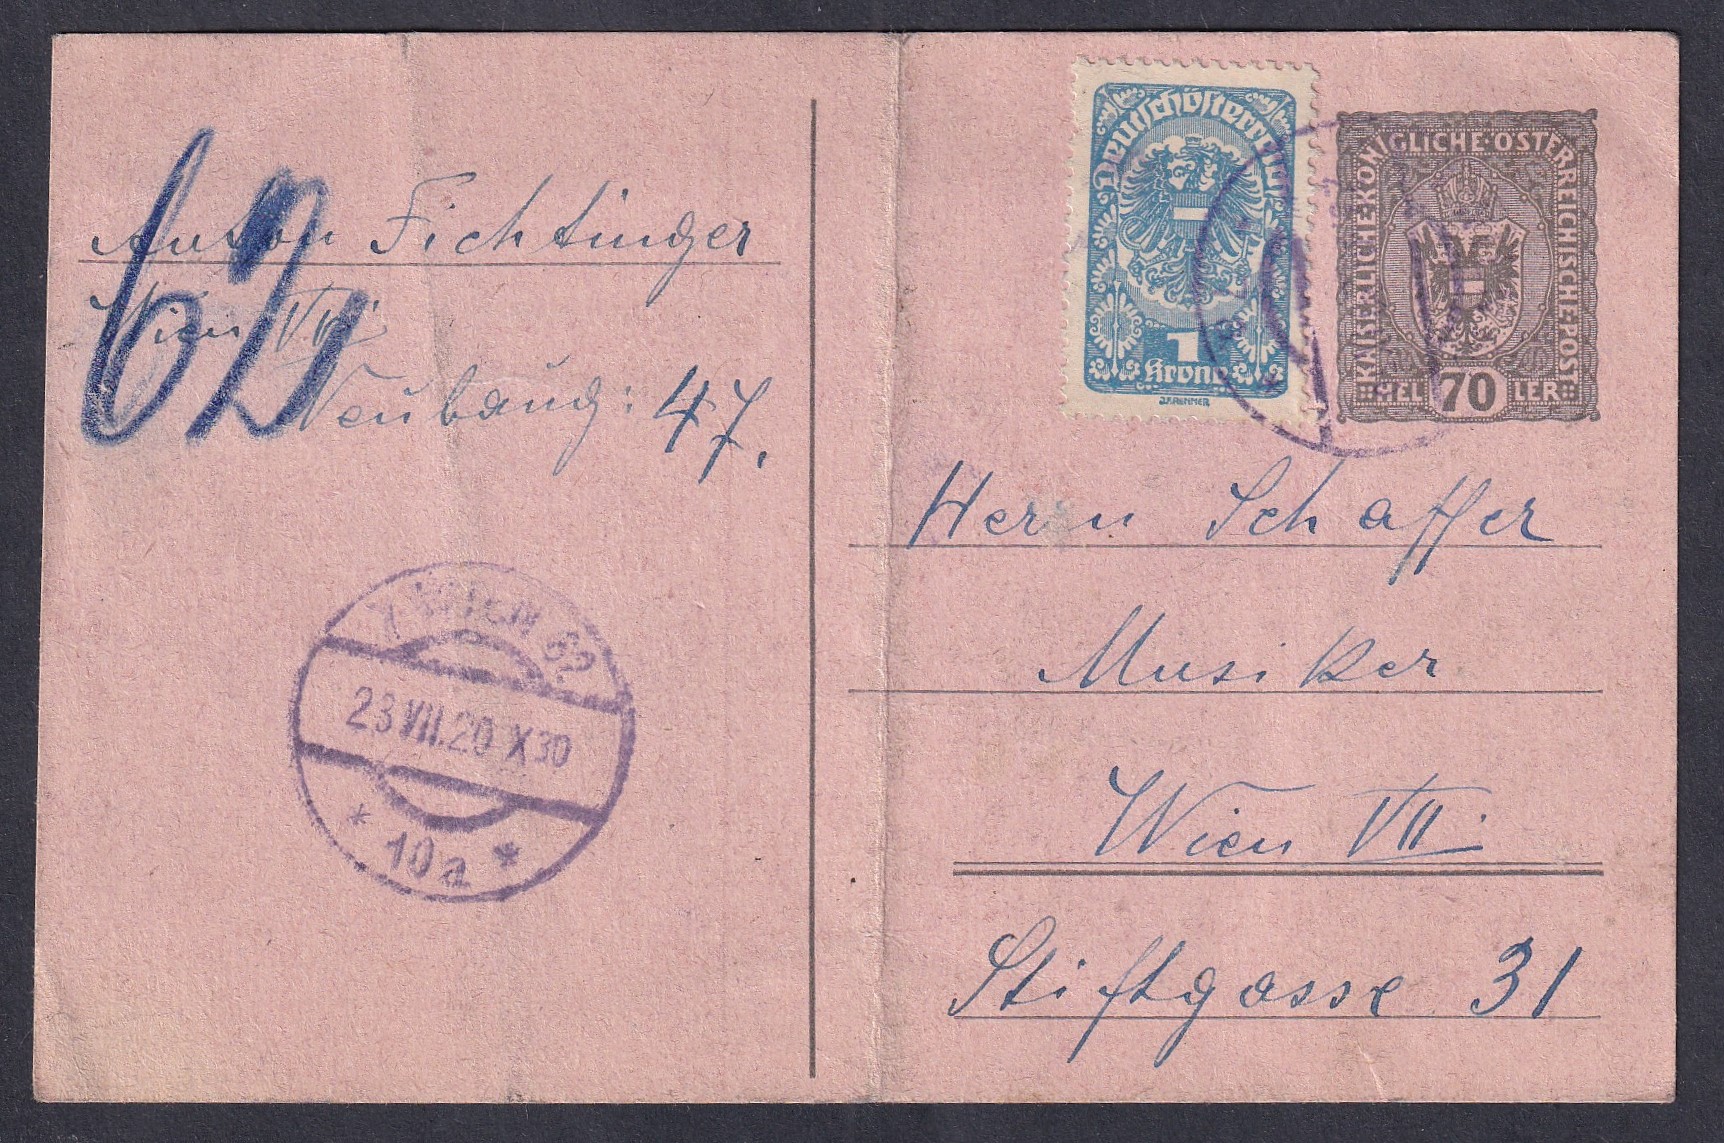 Anton Fichtinger
Wien VII
Neubaug: 47.
62
7 WIEN 62
23.VII.20 X30
* 10a *
Deutschösterreich
1
Krone
J.F.RENNER
KAISERLICHE KÖNIGLICHE·ÖSTERREICHISCHE·POST
HELLER 70
Herrn Schaffer
Musiker
Wien VII
Stiftgasse 31